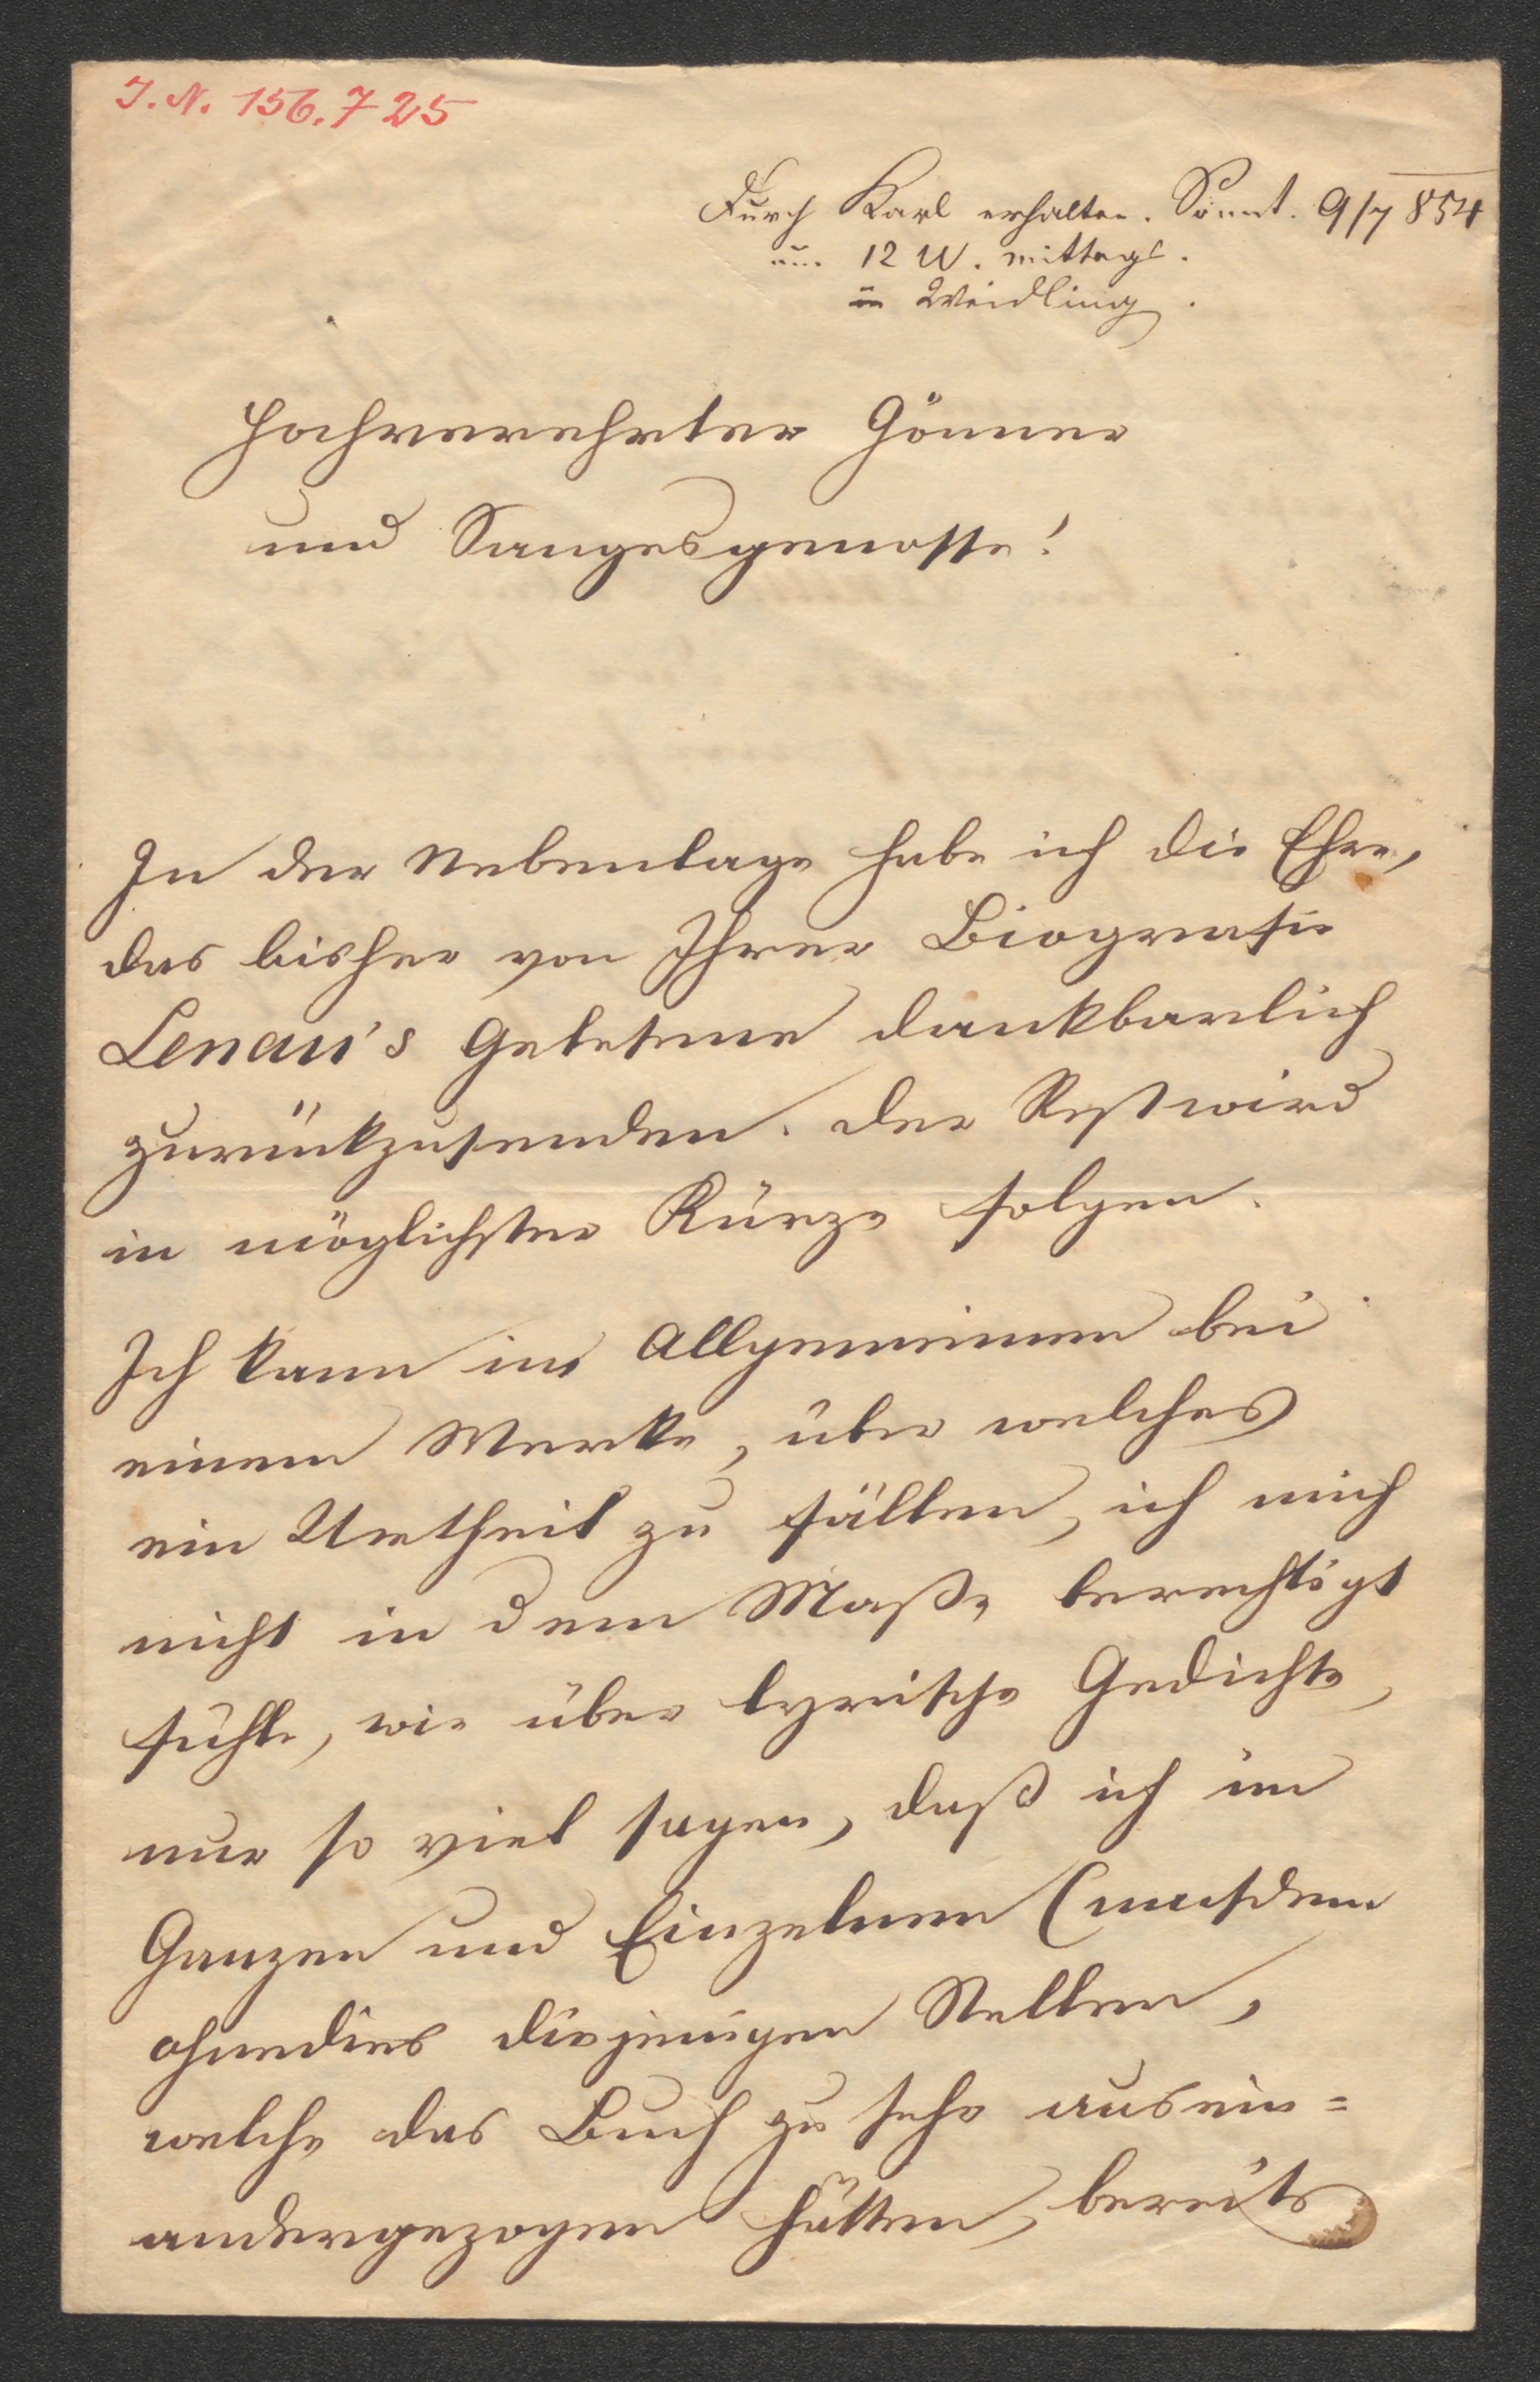 I. N. 156.725
Durch Karl erhalten. Sonnt. 9/7 854
um 12 U. mittags.
in Weidling.
Hochverehrter Gönner
und Sangesgenosse!
In der Nebenlage habe ich die Ehre,
das bisher von Ihrer Biografie
Lenau's Gelesene dankbarlich
zurückzusenden. Der Rest wird
in möglichster Kürze folgen.
Ich kann im Allgemeinen bei
einem Werke, über welches
ein Urtheil zu fällen, ich mich
nicht in dem Maße berechtigt
fühle, wie über lyrische Gedichte,
nur so viel sagen, daß ich im
Ganzen und Einzelnen (nachdem
ohnedies diejenigen Stellen,
welche das Buch zu sehr ausein=
andergezogen hätten, bereits